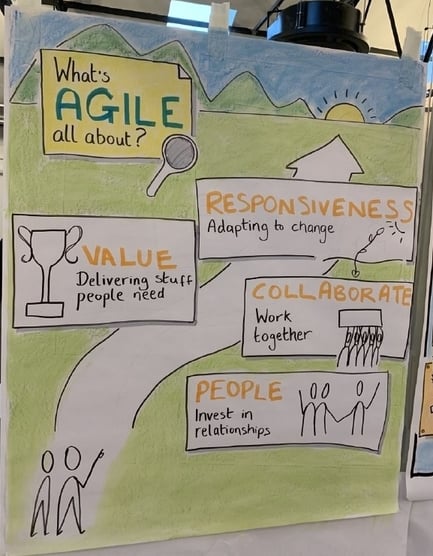 What's
AGILE
all about?
RESPONSIVENESS
Adapting to change
VALUE
Delivering stuff
people need
COLLABORATE
Work
together
PEOPLE
Invest in
relationships